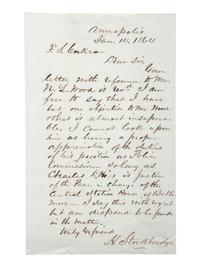 Annapolis
Jan. 14, 1864
Dear Sir,
Your
letter with reference to Mr
N. L. Wood is rec'd. I am
free to say that I have
but one objection to him & one
what is almost insuper-
able. I cannot look upon
him as having a proper
appreciation of the duties
of his position as Police
Commissioner so long as
Charles is Justice
of the Peace in charge of the
Central Station House of Balti
more. I say this with regret
but am disposed to be frank
in the matter.
Truly Yr friend
H. Stockbridge